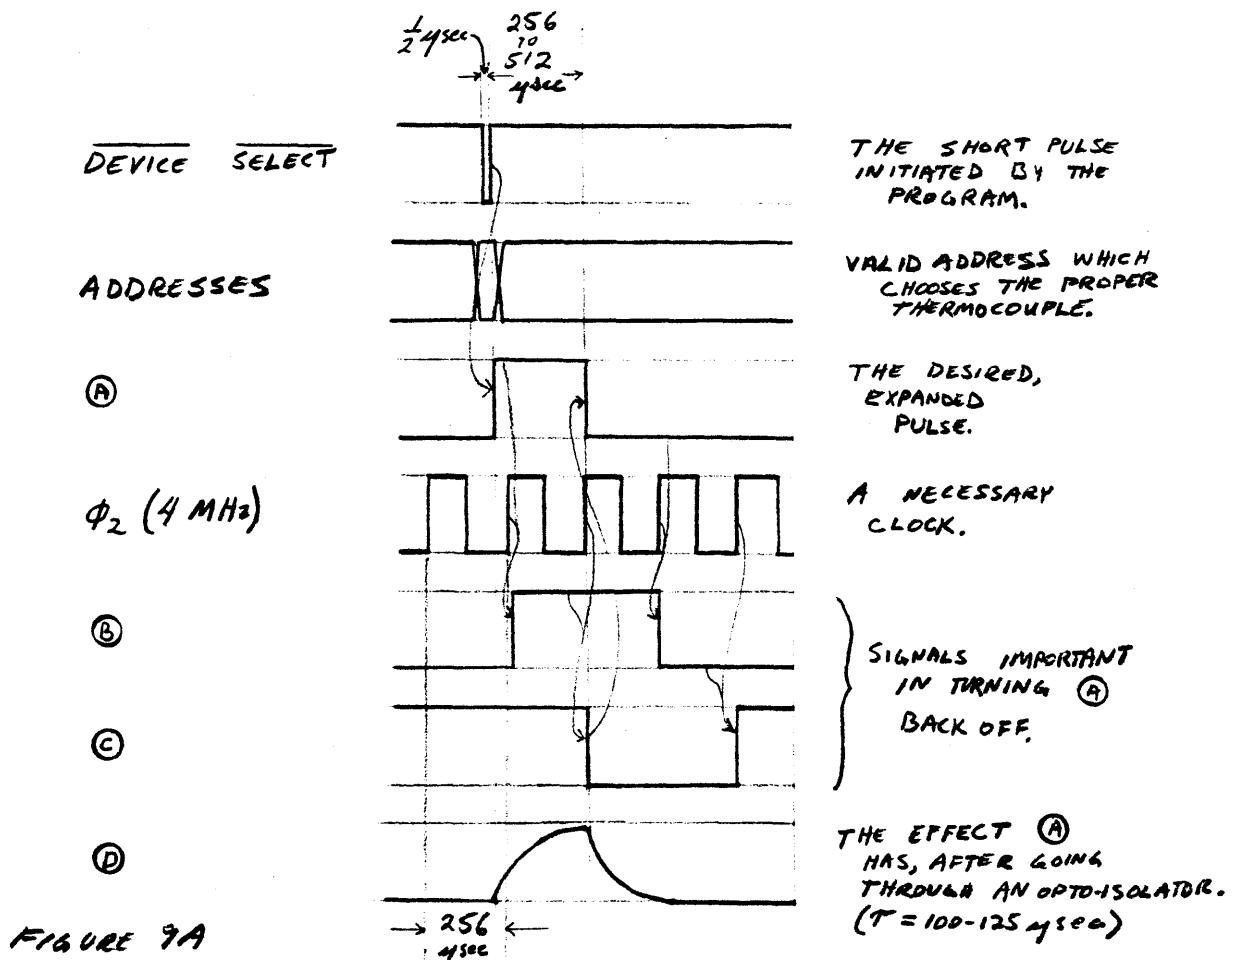 1/2 μsec
256
TO
512
μsec
DEVICE SELECT
THE SHORT PULSE
INITIATED BY THE
PROGRAM.
ADDRESSES
VALID ADDRESS WHICH
CHOOSES THE PROPER
THERMOCOUPLE.
Ⓐ
THE DESIRED,
EXPANDED
PULSE.
ϕ₂ (4 MHz)
A NECESSARY
CLOCK.
Ⓑ
SIGNALS IMPORTANT
IN TURNING Ⓐ
BACK OFF.
Ⓒ
Ⓓ
THE EFFECT Ⓐ
HAS, AFTER GOING
THROUGH AN OPTO-ISOLATOR.
(T = 100-125 μsec)
256
μsec
FIGURE 9A